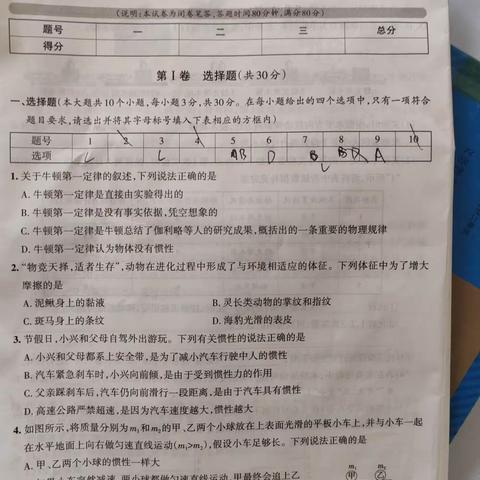 (说明:本试卷为闭卷笔答,答题时间80分钟,满分80分)
题号 一 二 三 总分
得分
第Ⅰ卷 选择题(共30分)
一、选择题(本大题共10个小题,每小题3分,共30分。在每小题给出的四个选项中,只有一项符合
题目要求,请选出并将其字母标号填入下表相应的方框内)
题号 1 2 3 4 5 6 7 8 9 10
选项 AB D B A
1.关于牛顿第一定律的叙述,下列说法正确的是
A.牛顿第一定律是直接由实验得出的
B.牛顿第一定律是没有事实依据,凭空想象的
C.牛顿第一定律是牛顿总结了伽利略等人的研究成果,概括出的一条重要的物理规律
D.牛顿第一定律认为物体没有惯性
2.“物竞天择,适者生存”,动物在进化过程中形成了与环境相适应的体征。下列体征中为了增大
摩擦的是
A.泥鳅身上的黏液 B.灵长类动物的掌纹和指纹
C.斑马身上的条纹 D.海豹光滑的表皮
3.节假日,小兴和父母自驾外出游玩。下列有关惯性的说法正确的是
A.小兴和父母都系上安全带,是为了减小汽车行驶中人的惯性
B.汽车紧急刹车时,小兴向前倾,是由于受到惯性力的作用
C.父亲踩刹车后,汽车仍向前滑行一段距离,是由于汽车具有惯性
D.高速公路严禁超速,是因为汽车速度越大,惯性越大
4.如图所示,将质量分别为m₁和m₂的甲、乙两个小球放在上表面光滑的平板小车上,并与小车一起
在水平地面上向右做匀速直线运动(m₁>m₂),假设小车足够长。下列说法正确的是
A.甲、乙两个小球的惯性一样大
m₁ m₂
甲 乙